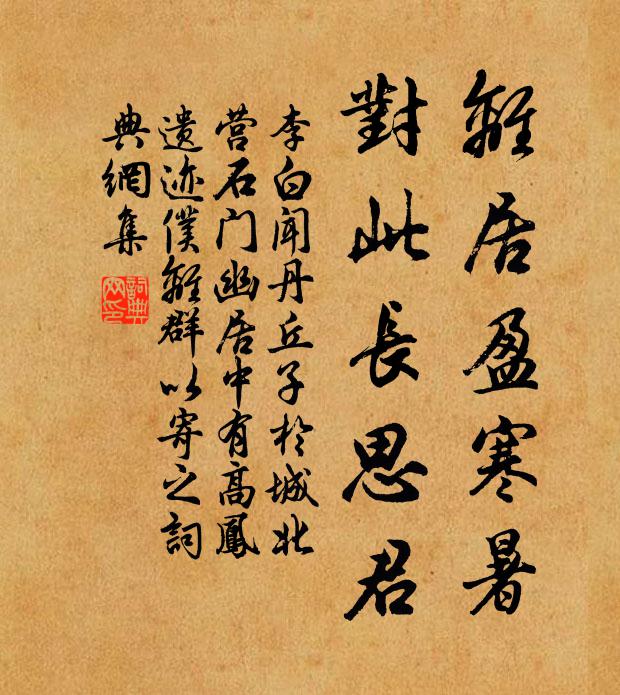 離居盈寒暑
對此長思君
李白闻丹丘子於城北
营石门幽居中有高鳳
遗迹僕離群以寄之詞
典網集
詞典
网印